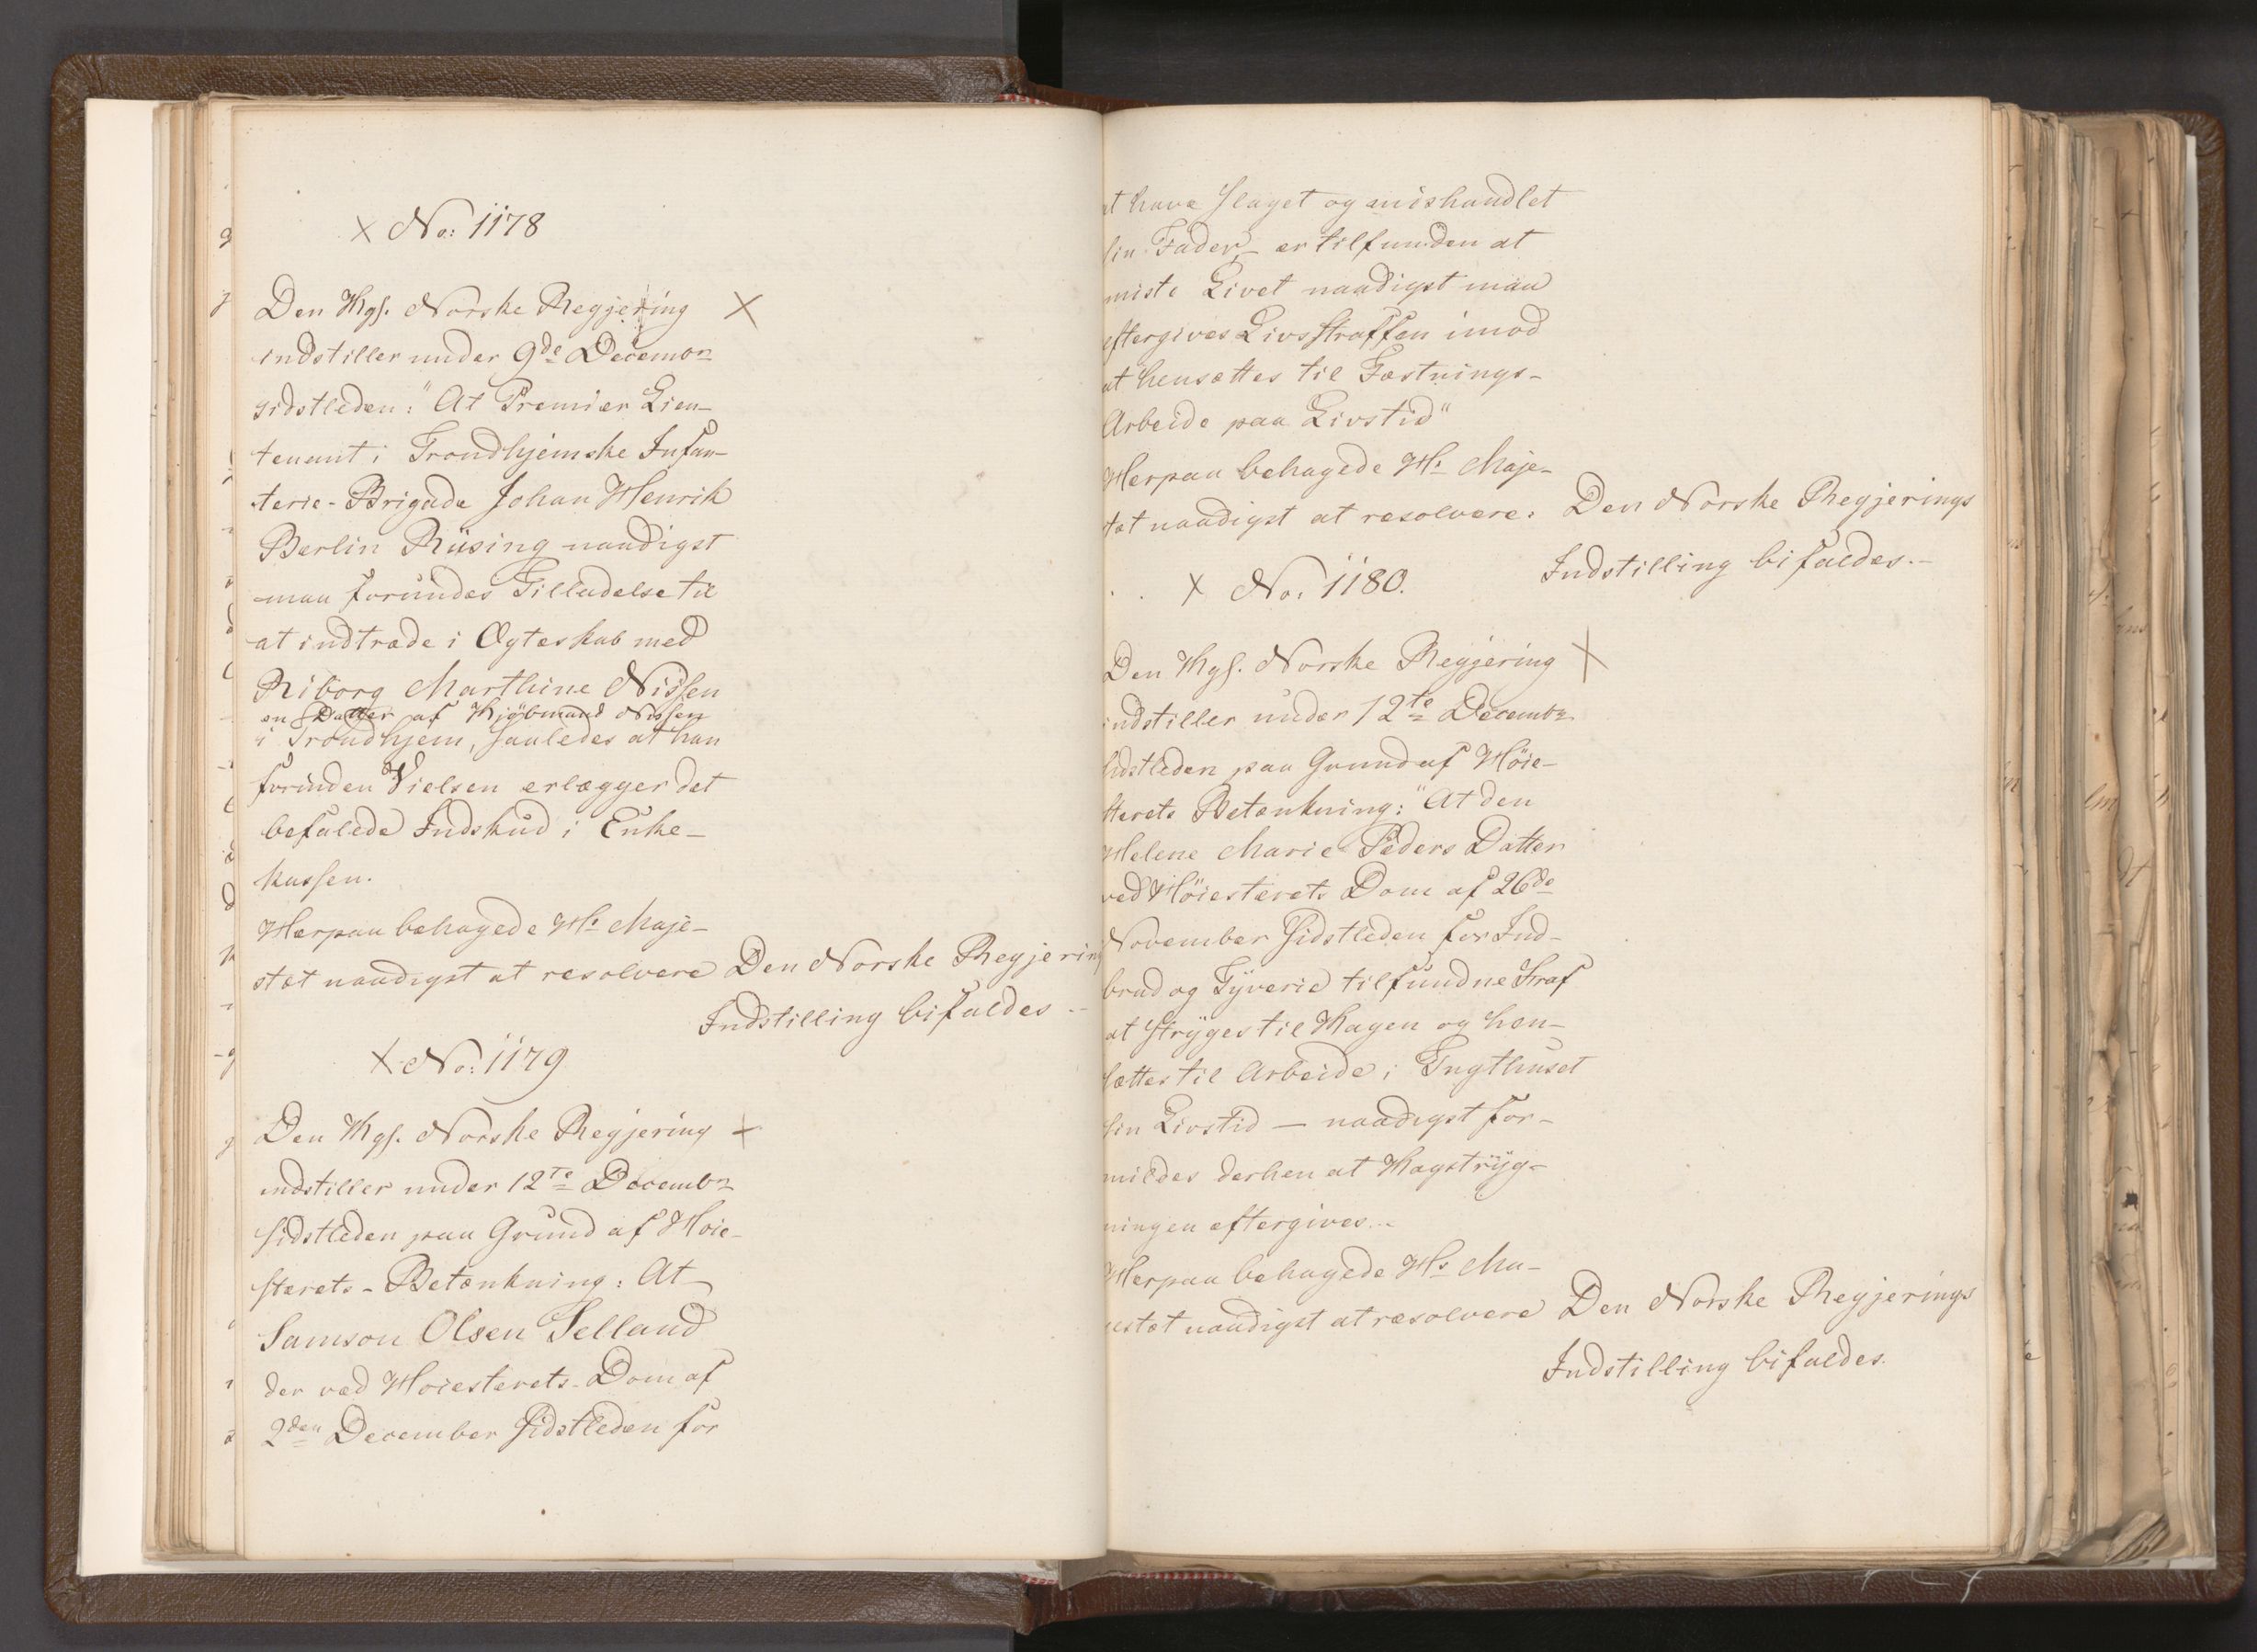 × No: 1178
Den Kgl. Norske Regjering ×
indstiller under 9de Decembr
sidstleden: "At Premier Lieu-
tenant i Trondhjemske Infan-
terie-Brigade Johan Henrik
Berlin Rüsing naadigst
maa forundes Tilladelse til
at indtræde i Ægteskab med
Riborg Marthine Nissen
en Datter af Kjöbmand Nissen
i Trondhjem, saaledes at han
forinden Vielsen erlægger det
befalede Indskud i Enke-
kassen.
Herpaa behagede Hs Maje-
stæt naadigst at resolvere Den Norske Regjering
Indstilling bifaldes –
× No: 1179
Den Kgl. Norske Regjering ×
indstiller under 12te Decembr
sidstleden paa Grund af Hoie-
sterets-Betænkning: At
Samson Olsen Selland
der ved Hoiesterets-Dom af
2den December sidstleden for
at have slaget og mishandlet
sin Fader – er tilfunden at
miste Livet naadigst maa
eftergives Livsstraffen imod
at hensættes til Fæstnings-
Arbeide paa Livstid"
Herpaa behagede Hs Maje-
stæt naadigst at resolvere: Den Norske Regjerings
Indstilling bifaldes.–
× No. 1180.
Den Kgl. Norske Regjering ×
indstiller under 12te Decembr
sidstleden paa Grund af Höie-
sterets Betænkning: "At den
Helene Marie Peders Datter
ved Höiesterets Dom af 26de
November sidstleden for Ind-
brud og Tyverie tilfundne Straf
at stryges til Kagen og hen-
sættes til Arbeide i Tugthuset
sin Livstid – naadigst for-
mildes derhen at Kagstryg-
ningen eftergives.–
Herpaa behagede Hs Ma-
jestæt naadigst at resolvere Den Norske Regjerings
Indstilling bifaldes.